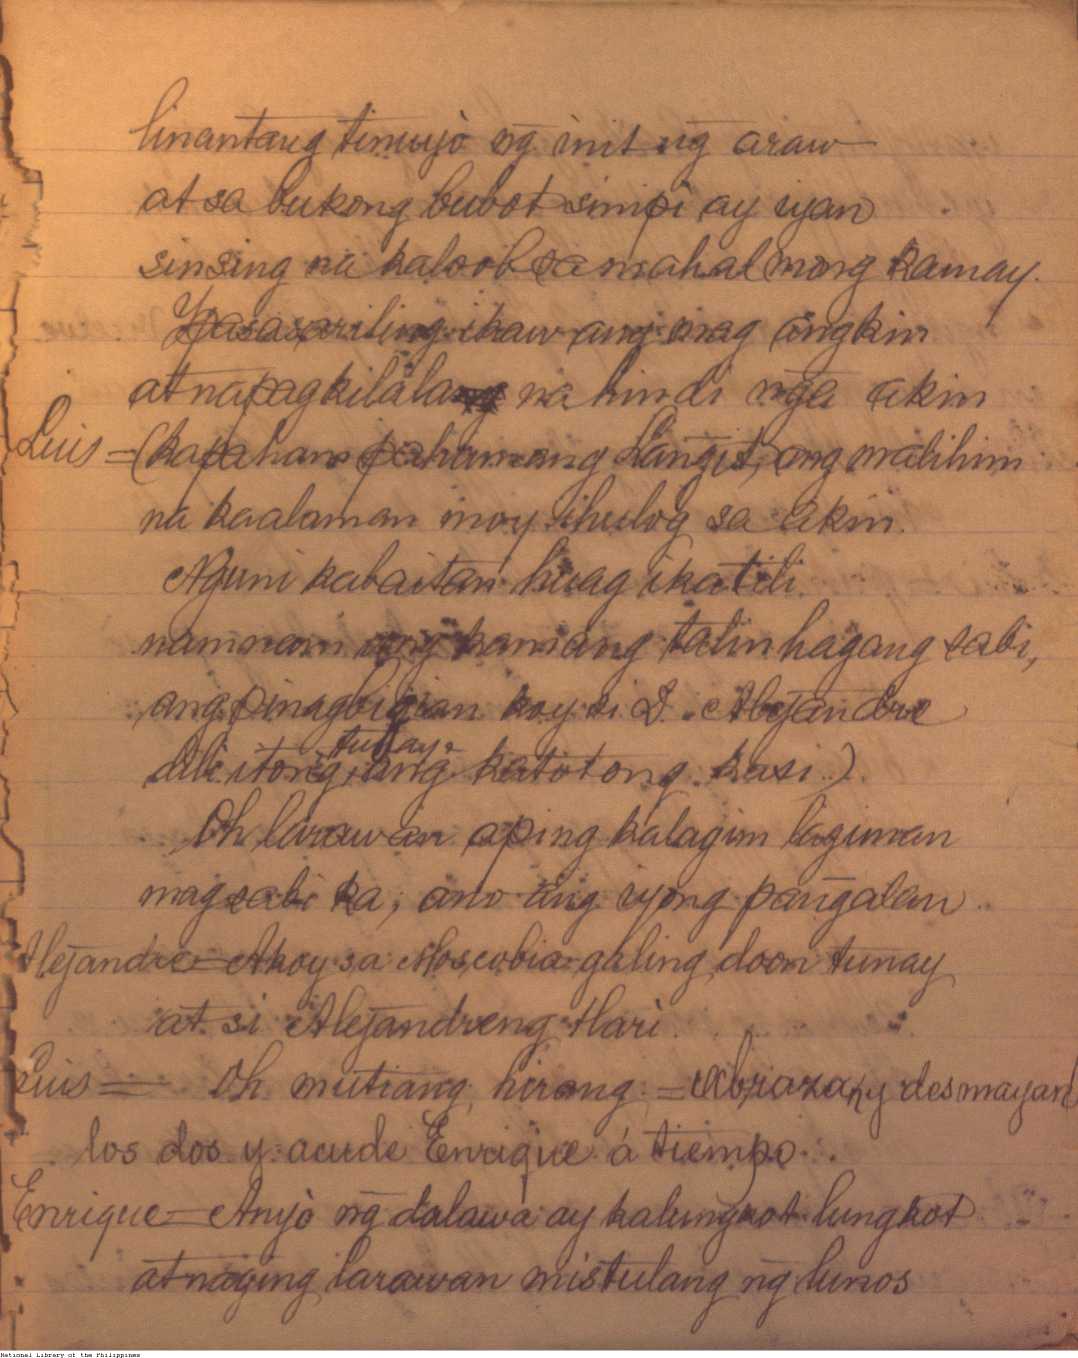 linantang tinuyò ng̃ init ng̃ araw
at sa bukong bubot simpi ay iyan
sinsing na kaloob sa mahal mong kamay.
Yasasariling ikaw ang mag angkin
at napagkilalang na hindi ng̃a akin
Luis = (kapaham pahamang Lang̃it, ang malihim
na kaalaman moy ihulog sa akin.
Nguni kabaitan huag ikatili
namnam ang kaniang talinhagang sabi,
ang pinagbigian koy si D. Alejandre
tunay
dili itong ang katotong kasi.)
Oh larawan aping kalagim lagiman
magsabi ka, ano ang iyong pang̃alan
Alejandre = Akoy sa Moscobia galing doon tunay
at si Alejandreng Hari.
Luis = Oh mutiang hirang = Abrazan y desmayan
los dos y acude Enrique á tiempo.
Enrique = Anyò ng̃ dalawa ay kalungkot lungkot
at naging larawan mistulang ng̃ lunos
National Library of the Philippines